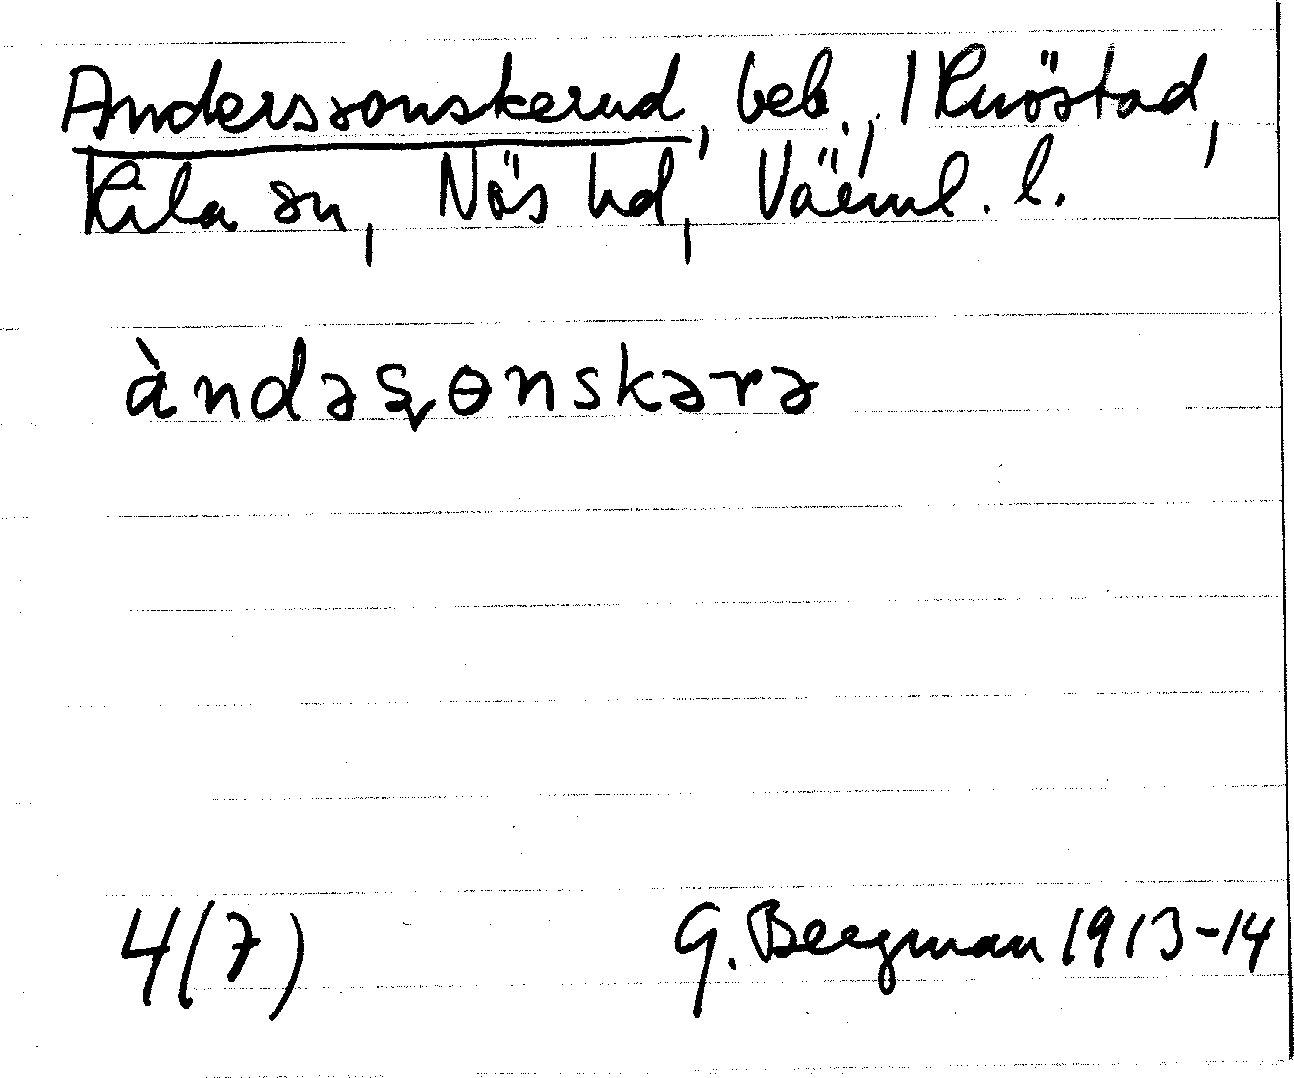 Anderssonskerud, beb., 1 Knöstad,
Kila sn, Näs hd, Värml. l.
àndəʂɵnskərə
4(7)
G. Bergman 1913-14